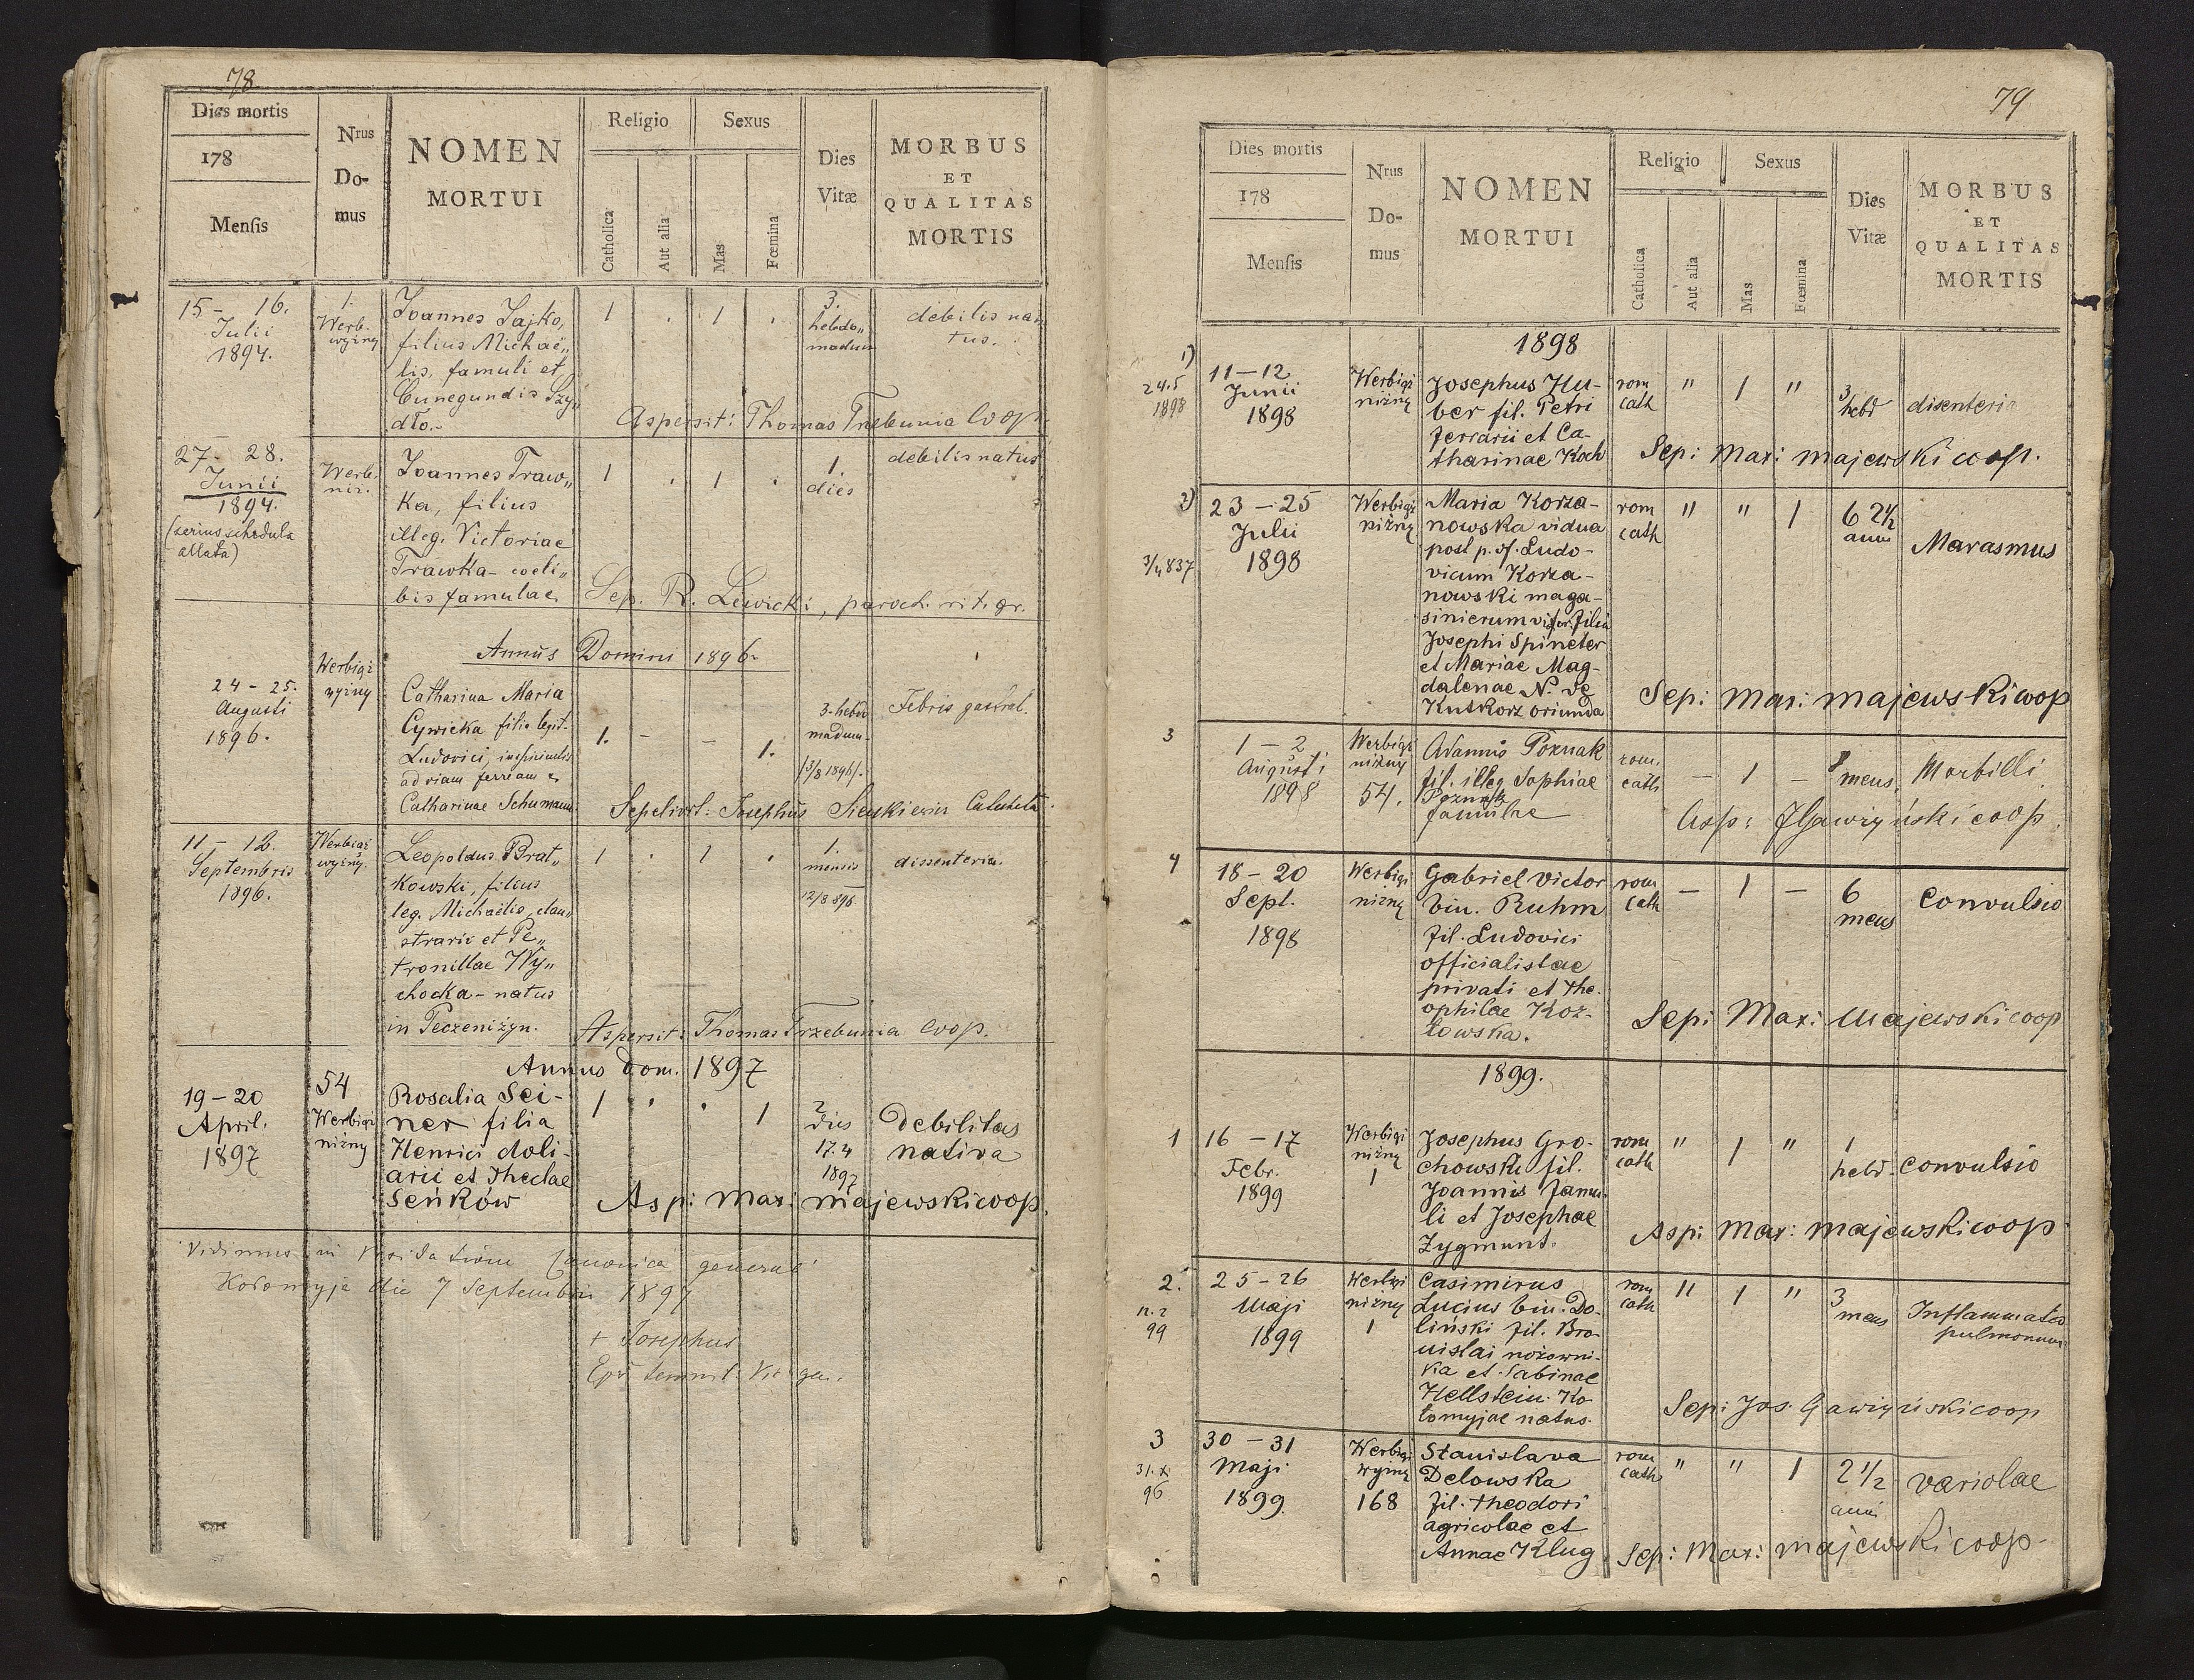 78
Dies mortis
178
Mensis
Nrus
Do-
mus
NOMEN
MORTUI
Religio
Catholica
Aut alia
Sexus
Mas
Fœmina
Dies
Vitæ
MORBUS
ET
QUALITAS
MORTIS
15 - 16.
Julii
1894.
1.
Werb.
wyżny
Joannes Jajko,
filius Michaë„
lis, famuli et
Cunegundis Szy„
dło.-
1 . 1 .
3.
hebdo„
madum
debilis na„
tus.
Aspersit: Thomas Trzebunia Coop.
27 - 28.
Junii
1894.
(serius schedula
allata)
Werb.
niż.
Joannes Traw„
ka, filius
illeg. Victoriae
Trawka - coeli„
bis famulae
1 . 1 .
1.
dies
debilis natus
Sep. R. Lewicki, paroch. rit. gr.
Annus Domini 1896.
24 - 25.
Augusti
1896.
Werbiąż
wyżny
Catharina Maria
Cywicka filia legit.
Ludovici,
ad viam ferream &
Catharinae Schumann.
1. - - 1.
3. hebdo
madum.
/3/8 1896/.
Febris gastral.
Sepelivit: Josephus Sienkiewicz
11 - 12.
Septembris
1896.
Werbiąż
wyżny.
Leopoldus Brat„
kowski, filius
leg. Michaëlis, clau„
strarii et Pe„
tronillae Wy„
chocka - natus
in Peczeniżyn.
1 . 1 .
1.
mensis
12/8 896
dissenteria.
Aspersit: Thomas Trzebunia Coop.
Annus Dom. 1897
19 - 20
April.
1897
54
Werbiąż
niżny
Rosalia Sei-
ner filia
Henrici doli-
arii et Theclae
Seńków
1 . . 1
2
dies
17.4
1897
Debilitas
nativa
Asp: Max: Majewski coop.
Vidimus in Visitatione Canonica generali
Kołomyja die 7 Septembris 1897
+ Josephus
79
Dies mortis
178
Mensis
Nrus
Do-
mus
NOMEN
MORTUI
Religio
Catholica
Aut alia
Sexus
Mas
Fœmina
Dies
Vitæ
MORBUS
ET
QUALITAS
MORTIS
1898
1)
24.5
1898
11-12
Junii
1898
Werbiąż
niżny
Josephus Hu-
ber fil. Petri
ferrarii et Ca-
tharinae Koch
rom
cath
" 1 "
3
hebd
disenteria
Sep: Max: Majewski coop.
2)
3/4 837
23 - 25
Julii
1898
Werbiąż
niżny
Maria Korza-
nowska vidua
post p. of. Ludo-
vicum Korza-
nowski maga-
sinierum filia
Josephi Spineter
et Mariae Mag-
dalenae N. de
Kutkorz oriunda
rom
cath
" " 1
62½
anni
Marasmus
Sep: Max: Majewski coop
3
1 - 2
Augusti
1898
Werbiąż
niżny
54.
Adamus Poznak
fil. illeg Sophiae
Poznak
famulae
rom.
cath
- 1 -
8
mens.
Morbilli
Asp: J Gawżyński coop.
4
18 - 20
Sept.
1898
Werbiąż
niżny
Gabriel Victor
bin. Ruhm
fil. Ludovici
officialistae
privati et The-
ophilae Koz-
łowska.
rom
cath
- 1 -
6
mens
Convulsio
Sep: Max: Majewski coop
1899.
1
16 - 17
Febr.
1899
Werbiąż
niżny
1
Josephus Gro-
chowski fil.
Joannis famu-
li et Josephae
Zygmunt.
rom
cath
" 1 "
1
hebd.
Convulsio
Asp: Max: Majewski coop
2.
11.2
99
25 - 26
Maji
1899
Werbiąż
niżny
1
Casimirus
Lucius bin. Do-
liński fil. Bro-
nislai nożowni-
ka et Sabinae
Hellstein. Ko-
łomyjae natus.
rom
cath
" 1 "
3
mens
Inflammatio
pulmonum
Sep: Jos. Gawżyński coop
3
31.X
96
30 - 31
Maji
1899
Werbiąż
wyżny
168
Stanislava
Delowska
fil. Theodori
agricolae et
Annae Klug
rom
cath
" " 1
2½
anni
Variolae
Sep: Max: Majewski coop.